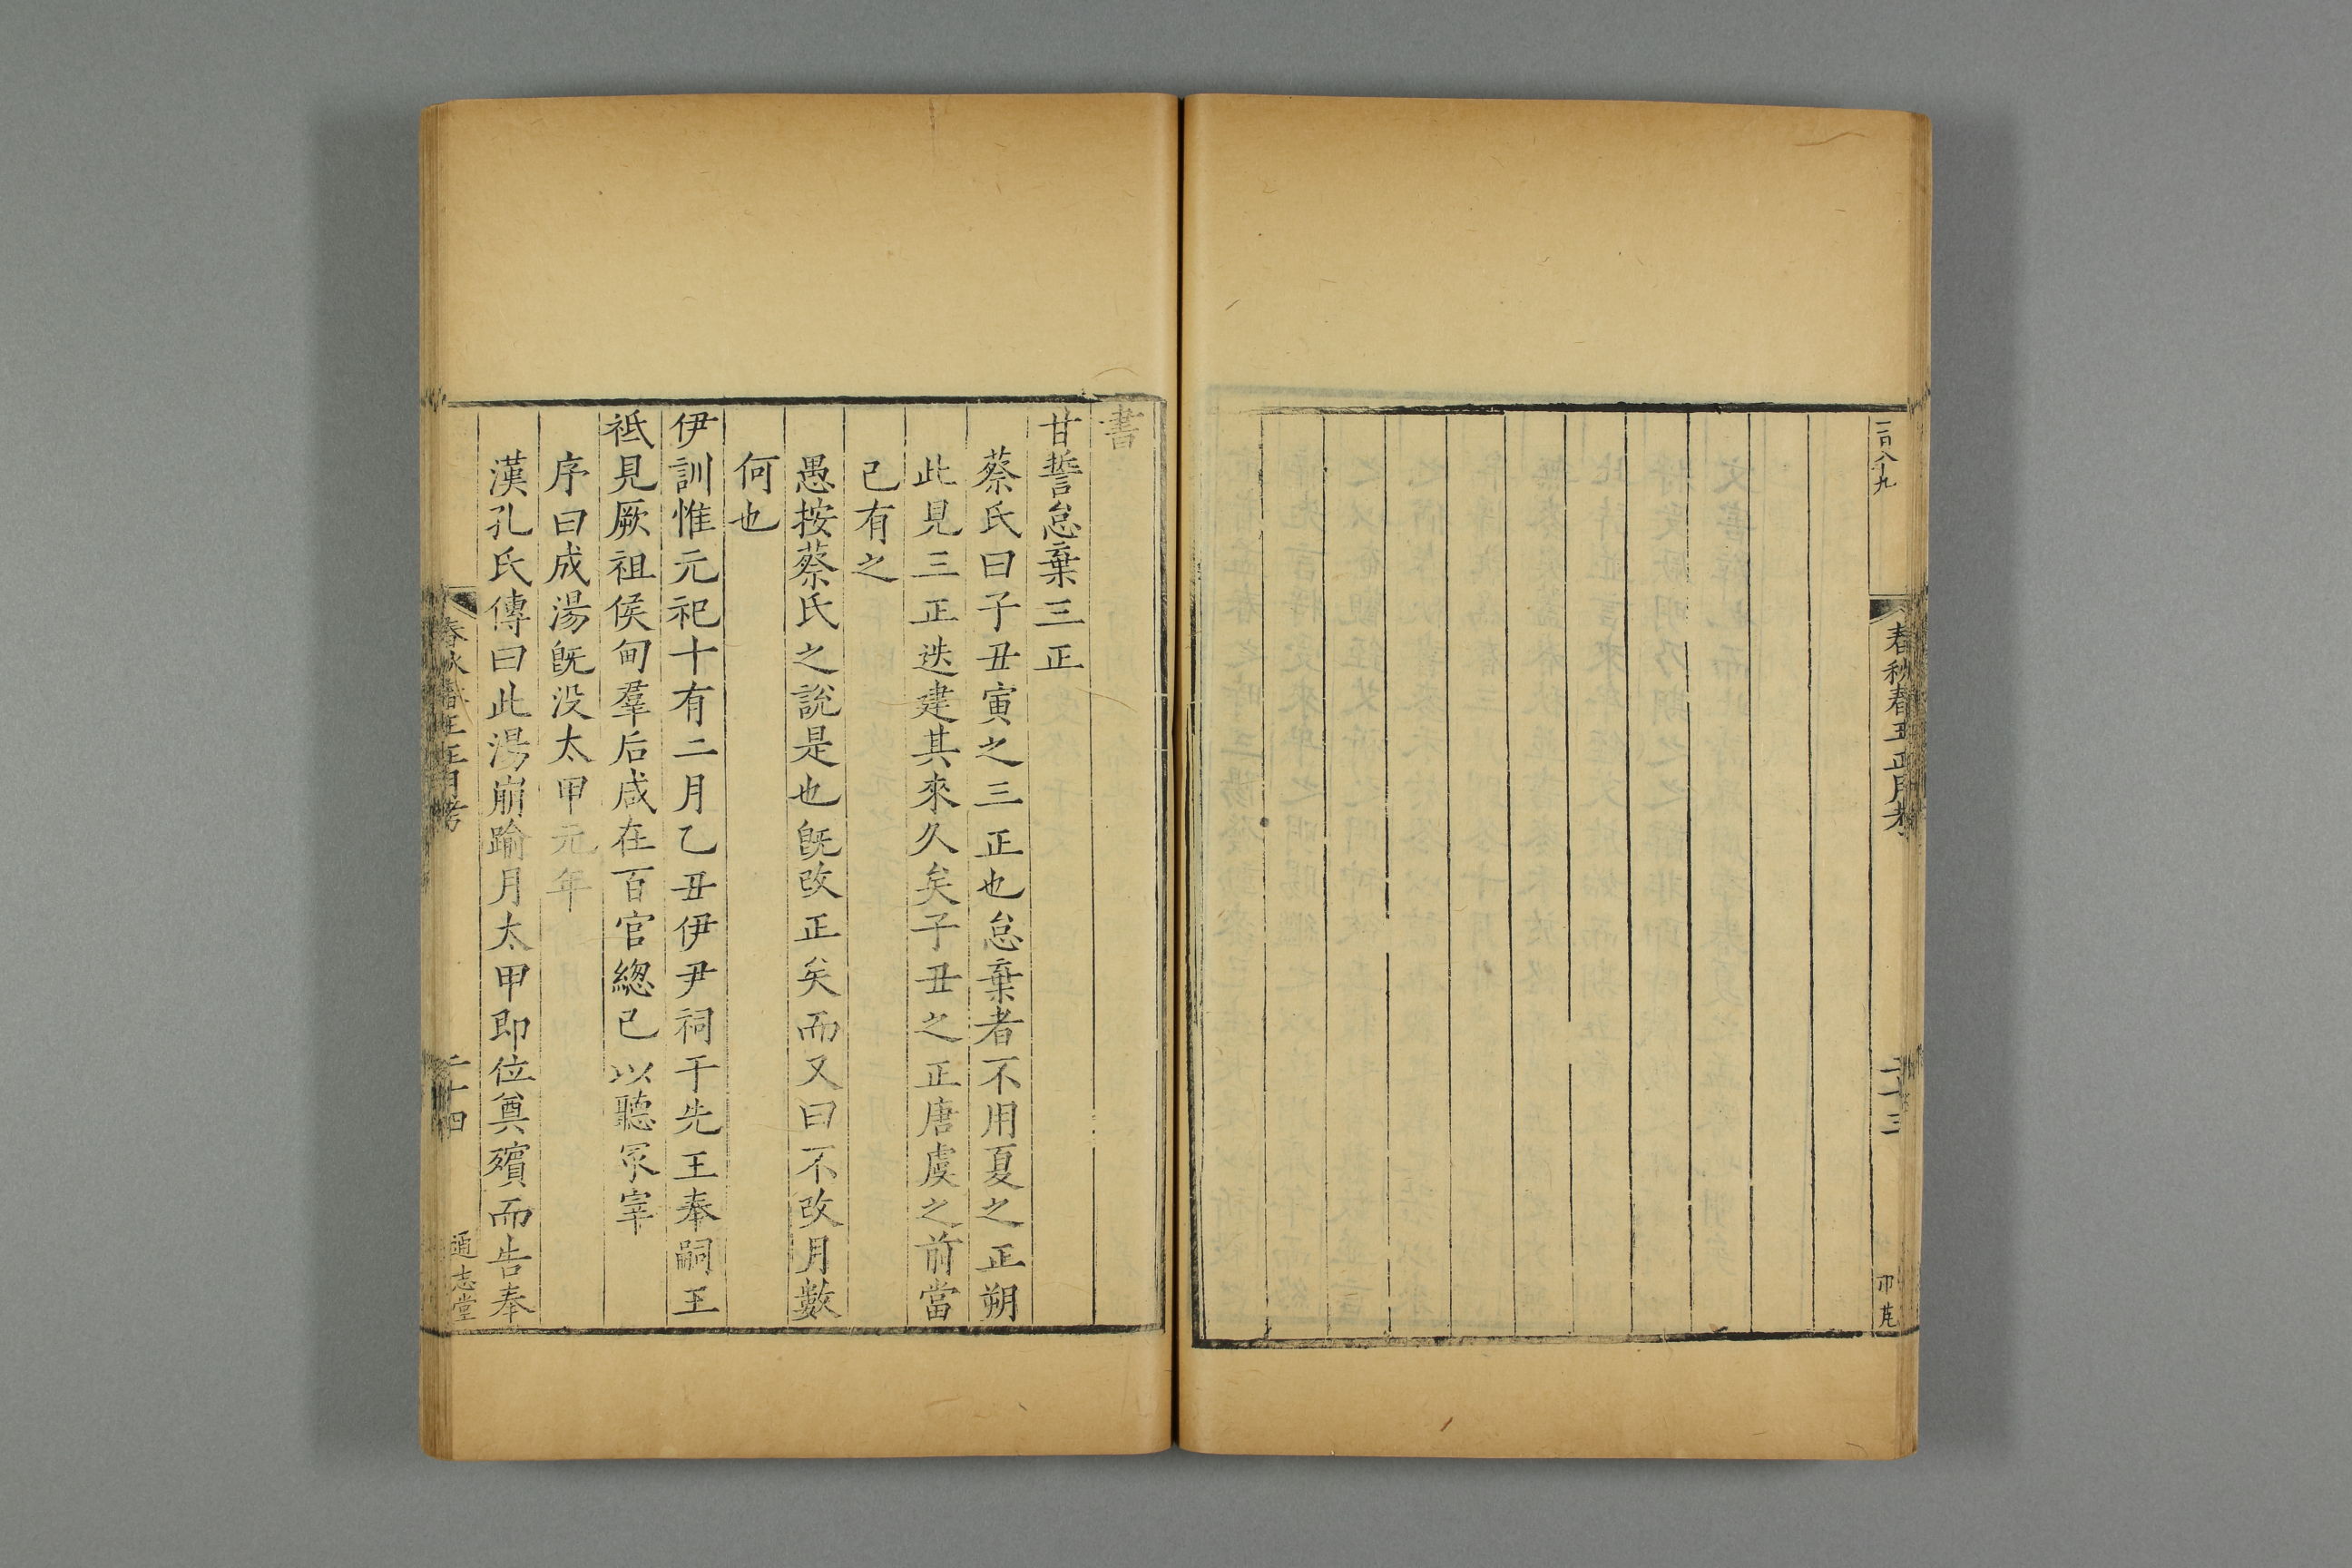 一百八十九
春秋春王正月考
二十三
書
甘誓怠棄三正
蔡氏曰子丑寅之三正也怠棄者不用夏之正朔
此見三正迭建其來久矣子丑之正唐虞之前當
已有之
愚按蔡氏之說是也旣改正矣而又曰不改月數
何也
伊訓惟元祀十有二月乙丑伊尹祠于先王奉嗣王
祗見厥祖侯甸羣后咸在百官總已以聽冢宰
序曰成湯旣没太甲元年
漢孔氏傳曰此湯崩踰月太甲即位奠殯而告奉
春秋春王正月考
二十四
通志堂